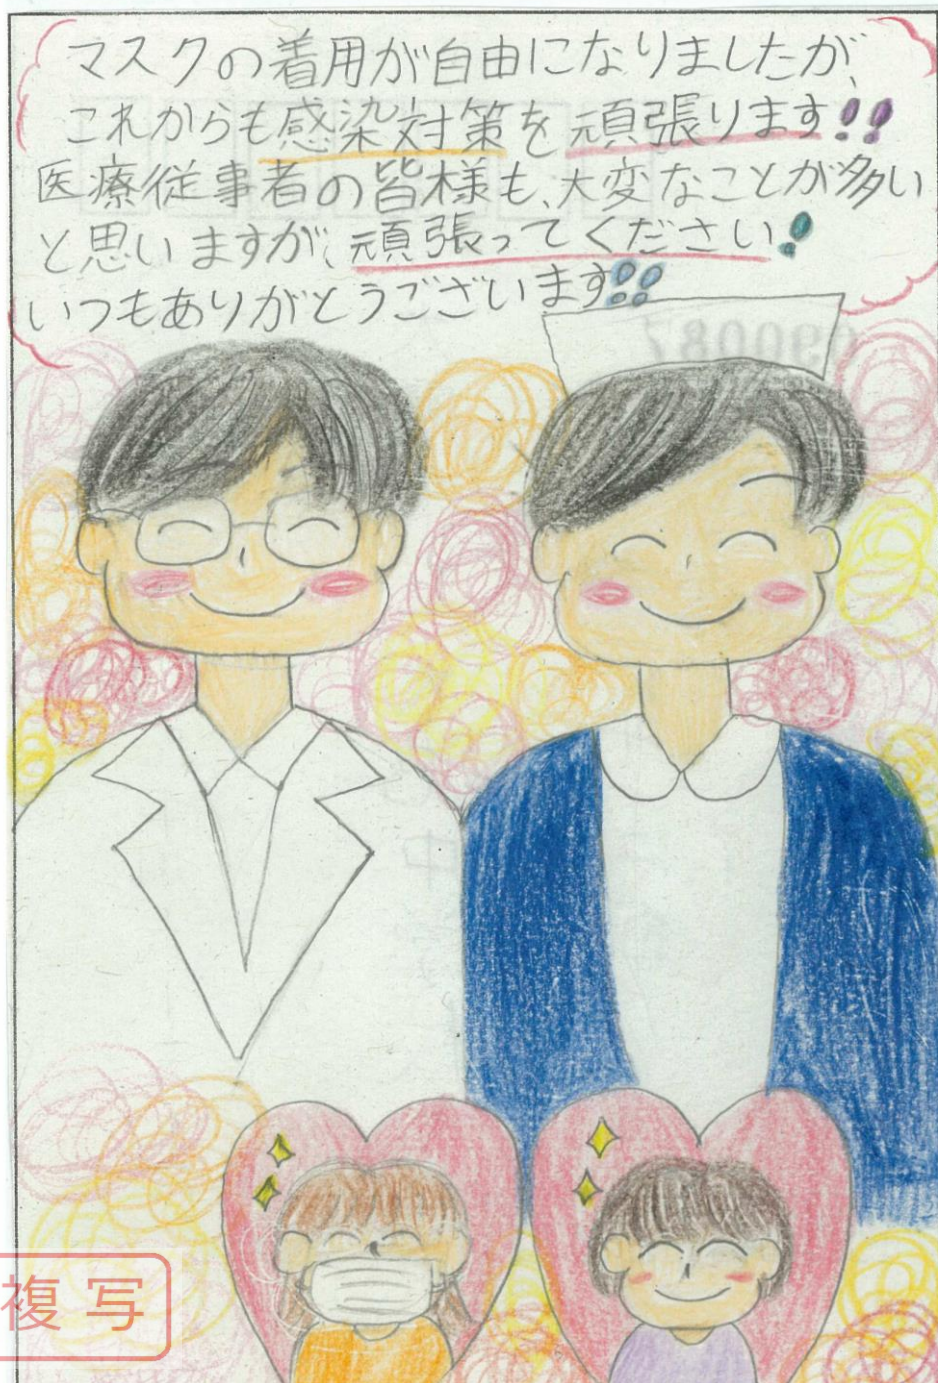 マスクの着用が自由になりましたが、
これからも感染対策を頑張ります!!
医療従事者の皆様も、大変なことが多い
と思いますが、頑張ってください!
いつもありがとうございます!!
690087
複写